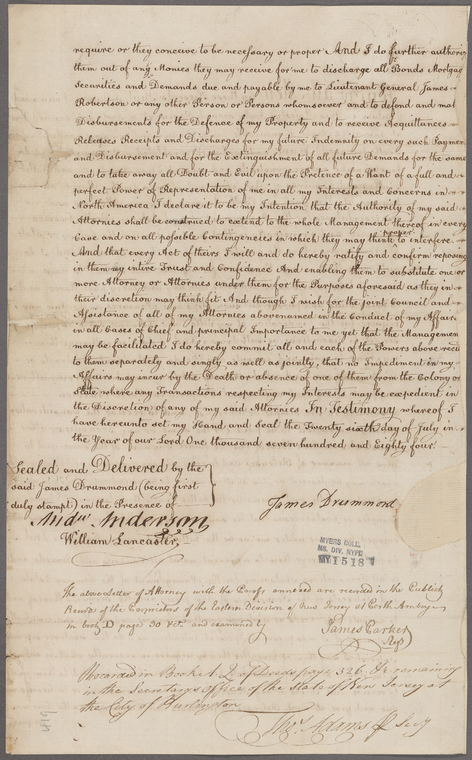 require or they conceive to be necessary or proper And I do further authorize
them out of any Monies they may receive for me to discharge all Bonds Mortgag
Securities and Demands due and payable by me to Lieutenant General James
Robertson or any other Person or Persons whomsoever and to defend and mak
Disbursements for the Defence of my Property and to receive Acquittances
Releases Receipts and Discharges for my future Indemnity on every such Paymen
and Disbursement and for the Extinguishment of all future Demands for the same
and to take away all Doubt and Evil upon the Pretence of a Want of a full and
perfect Power of Representation of me in all my Interests and Concerns in
North America I declare it to be my Intention that the Authority of my said
Attornies shall be construed to extend to the whole Management thereof in every
Case and on all possible Contingencies in which they may think proper to interfere
And that every Act of theirs I will and do hereby ratify and confirm reposing
in them my intire Trust and Confidence And enabling them to substitute one or
more Attorney or Attornies under them for the Purposes aforesaid as they in
their discretion may think fit And though I wish for the joint Council and
Assistance of all of my Attornies abovenamed in the Conduct of my Affair
in all Cases of Chief and principal Importance to me yet that the Managemen
may be facilitated I do hereby commit all and each of the Powers above
to them separately and singly as well as jointly, that no Impediment in my
Affairs may incur by the Death or absence of one of them from the Colony or
State where any Transactions respecting my Interests may be expedient in
the Discretion of any of my said Attornies In Testimony whereof I
have hereunto set my Hand and Seal the Twenty sixth day of July in
the Year of our Lord One thousand seven hundred and Eighty four
Sealed and Delivered by the
said James Drummond (being first
duly stampt) in the Presence of
James Drummond
Anderson
William Lancaster
MYERS COLL.
MS. DIV. NYPL
MY 1518
The above Letter of Attorney with the Proofs annexed are recorded in the Publick
Records of the Proprietors of the Eastern Division of New Jersey at Perth Amboy
in book D page 30 &c. and examined by
James Parker
Regr
Recorded in Book A.L. of Deeds page 326 &c remaining
in the Secretarys Office of the State of New Jersey at
the City of Burlington
Thos. Adams Secy
1518